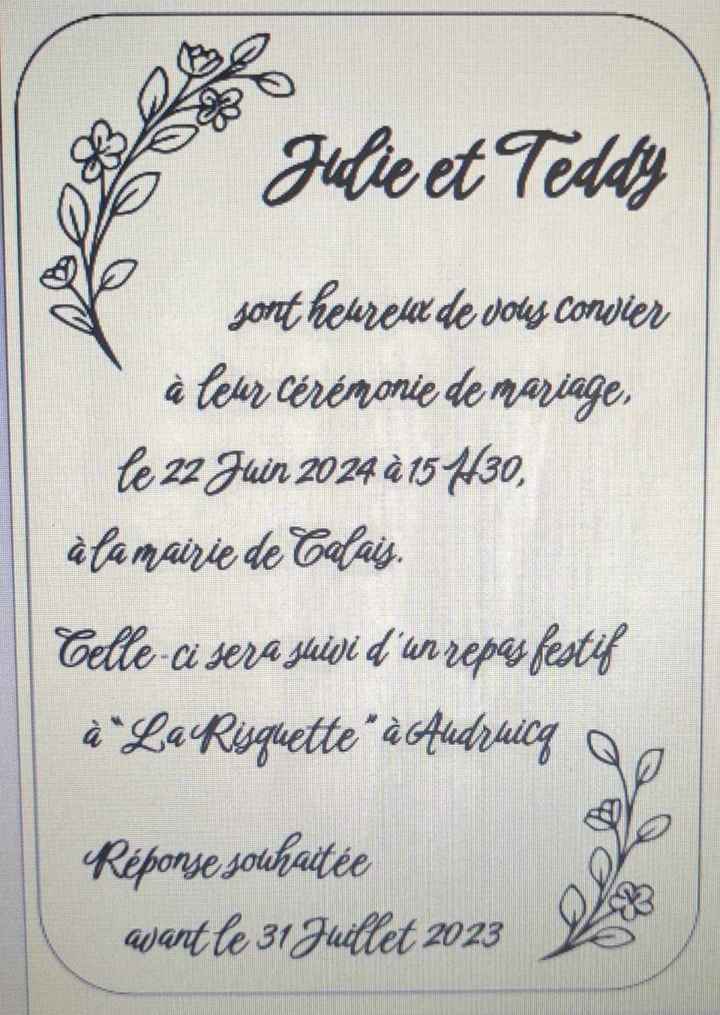 Julie et Teddy
sont heureux de vous convier
à leur cérémonie de mariage,
le 22 Juin 2024 à 15 H30,
à la mairie de Calais.
Celle-ci sera suivi d'un repas festif
à "La Risquette" à Audruicq
Réponse souhaitée
avant le 31 Juillet 2023